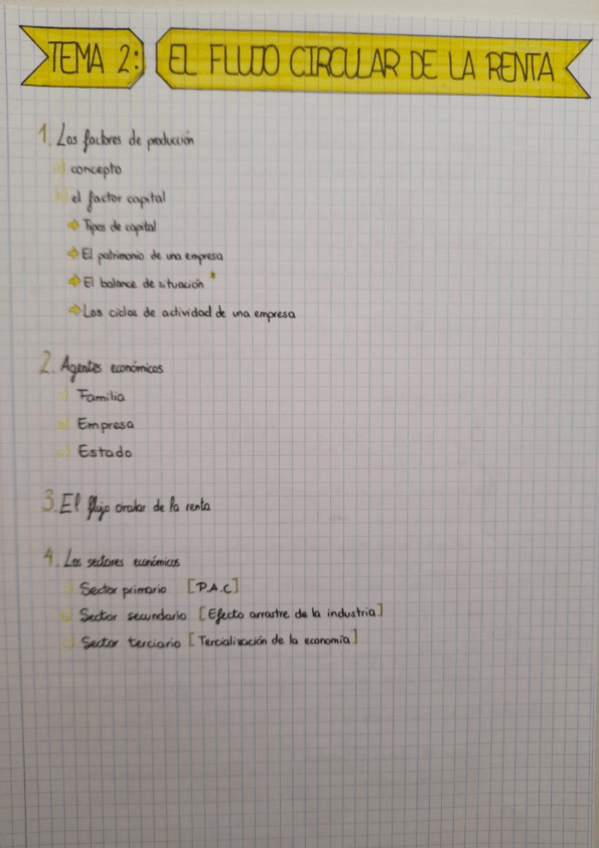 TEMA 2: EL FLUJO CIRCULAR DE LA RENTA
1. Los factores de producción
a) concepto
b) el factor capital
⇒ Tipos de capital
⇒ El patrimonio de una empresa
⇒ El balance de situación *
⇒ Los ciclos de actividad de una empresa
2. Agentes económicos
a) Familia
b) Empresa
c) Estado
3. El flujo circular de la renta
4. Los sectores económicos
a) Sector primario [P.A.C]
b) Sector secundario [Efecto arrastre de la industria]
c) Sector terciario [Tercialización de la economía]